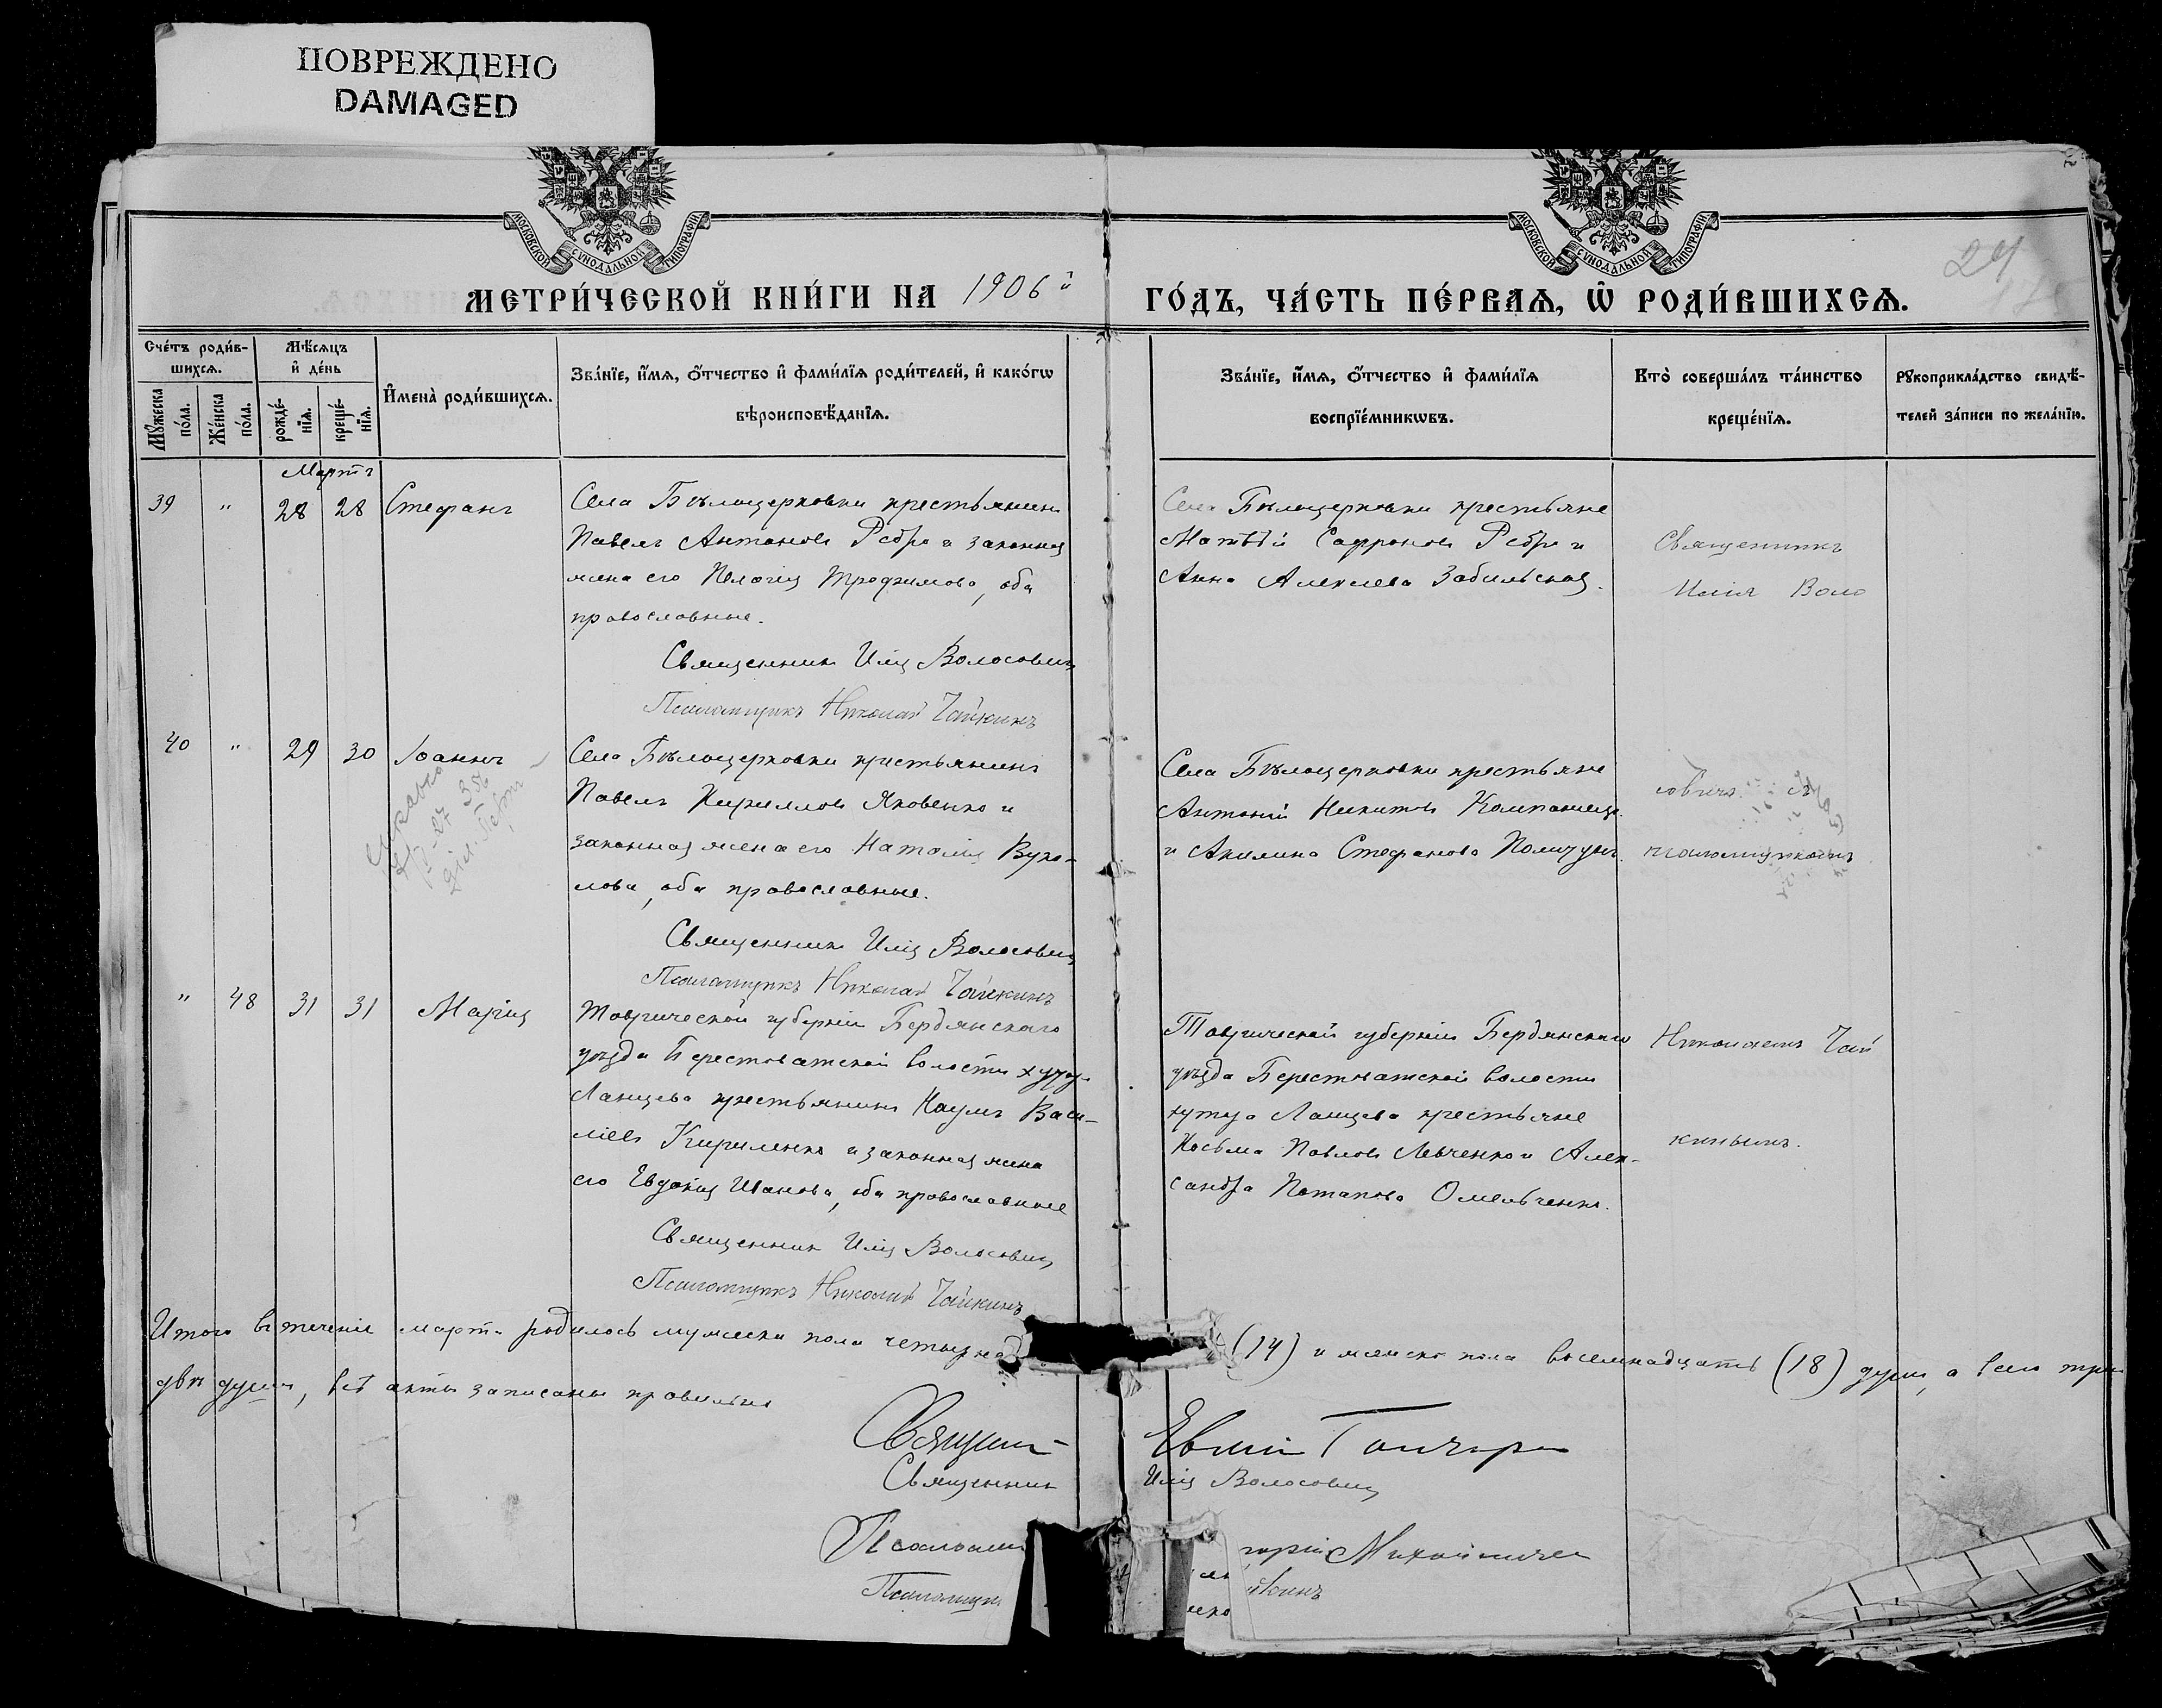 ПОВРЕЖДЕНО
DAMAGED
МОСКОВСКОЙ СѴНОДАЛЬНОЙ ТИПОГРАФІИ
МОСКОВСКОЙ СѴНОДАЛЬНОЙ ТИПОГРАФІИ
29
МЕТРИ́ЧЕСКОЙ КНИ́ГИ НА 1906й
ГО́ДЪ, ЧА́СТЬ ПЕ́РВАѦ, Ѡ҆ РОДИ́ВШИХСѦ.
Сче́тъ роди́в-
шихсѧ.
Мꙋ́жеска по́ла.
Же́нска по́ла.
Мѣ́сѧцъ
и҆ де́нь
рожде́-нїѧ.
креще́-нїѧ.
И҆мена̀ роди́вшихсѧ.
Зва́нїе, и҆́мѧ, ѻ҆́тчество и҆ фами́лїѧ роди́телей, и҆ како́гѡ
вѣроисповѣ́данїѧ.
Зва́нїе, и҆́мѧ, ѻ҆́тчество и҆ фами́лїѧ
воспрїе́мникѡвъ.
Кто̀ соверша́лъ та́инство
креще́нїѧ.
Рꙋкоприкла́дство свидѣ́-
телей за́писи по жела́нїю.
Мартъ
39 " 28 28 Стефанъ
Села Бѣлоцерковки крестьянинъ
Павелъ Антоновъ Ребро и законная
жена его Пелагія Трофимова, оба
православные.
Священникъ Илія Волосовичъ
Псаломщикъ Николай Чайкинъ
Села Бѣлоцерковки крестьяне
Матѳѣй Сафроновъ Ребро и
Анна Алексеева Забильская.
Священникъ
Илія Воло
40 " 29 30 Іоаннъ
Села Бѣлоцерковки крестьянинъ
Павелъ Кирилловъ Яковенко и
законная жена его Наталія Вуко-
лова, оба православные.
Священникъ Илія Волосовичъ
Псаломщикъ Николай Чайкинъ
Села Бѣлоцерковки крестьяне
Антоній Никитовъ Компаніецъ
и Акилина Стефанова
совичъ
псаломщикомъ
" 48 31 31 Марія
Таврической губерніи Бердянскаго
уѣзда Берестоватской волости хутора
Ланцева крестьянинъ Наумъ Васи-
ліевъ Кириленко и законная жена
его Евдокія Иванова, оба православные
Священникъ Илія Волосовичъ
Псаломщикъ Николай Чайкинъ
Таврической губерніи Бердянскаго
уѣзда Берестоватской волости
хутора Ланцева крестьяне
Косьма Павловъ Левченко и Алек-
сандра Потапова Омельченко.
Николаемъ Чай
кинымъ.
Итого въ теченіе марта родилось мужеска пола четырнад (14) и женска пола восемнадцать (18) душъ, а всего трид
двѣ души, всѣ акты записаны правильно
Священникъ Евѳимій Гончаровъ
Священникъ Илія Волосовичъ
Псаломщ горій
Псаломщи йкинъ